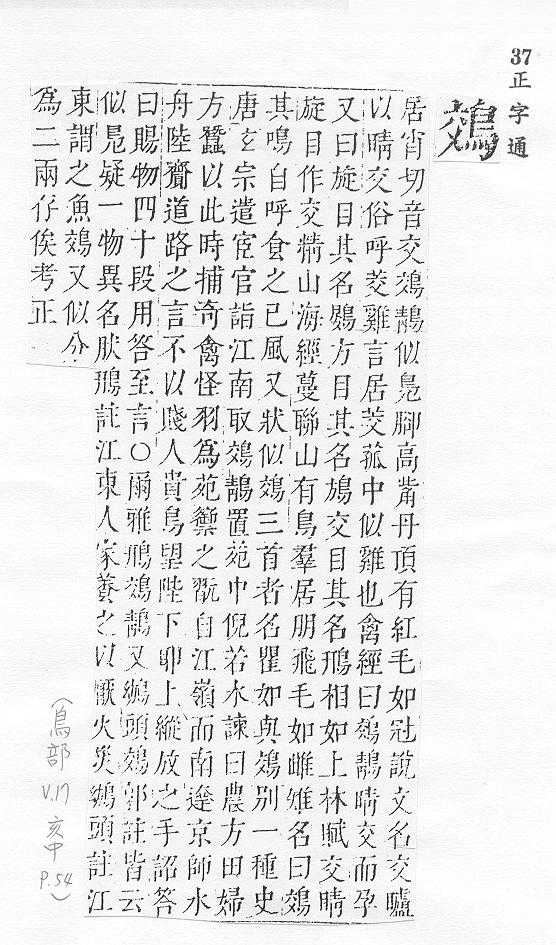 37 正字通
鵁
居宵切音交鵁鶄似鳧腳高觜丹頂有紅毛如冠說文名交矑
以睛交俗呼茭雞言居茭菰中似雞也禽經曰鵁鶄睛交而孕
又曰旋目其名鷃方目其名鳩交目其名鳽相如上林賦交睛
旋目作交精山海經蔓聯山有鳥羣居朋飛毛如雌雉名曰鵁
其鳴自呼食之已風又狀似鵁三首者名瞿如與鵁別一種史
唐玄宗遣宦官詣江南取鵁鶄置苑中倪若水諫曰農方田婦
方蠶以此時捕奇禽怪羽為苑籞之翫自江嶺而南達京師水
舟陸齎道路之言不以賤人貴鳥望陛下耶上縱放之手詔答
曰賜物四十段用答至言○爾雅鳽鵁鶄又鷉頭鵁郭註皆云
似鳧疑一物異名肰鳽註江東人家養之以厭火災鷉頭註江
東謂之魚鵁又似分
為二兩存俟考正
(鳥部 V.17 亥中 P.54)